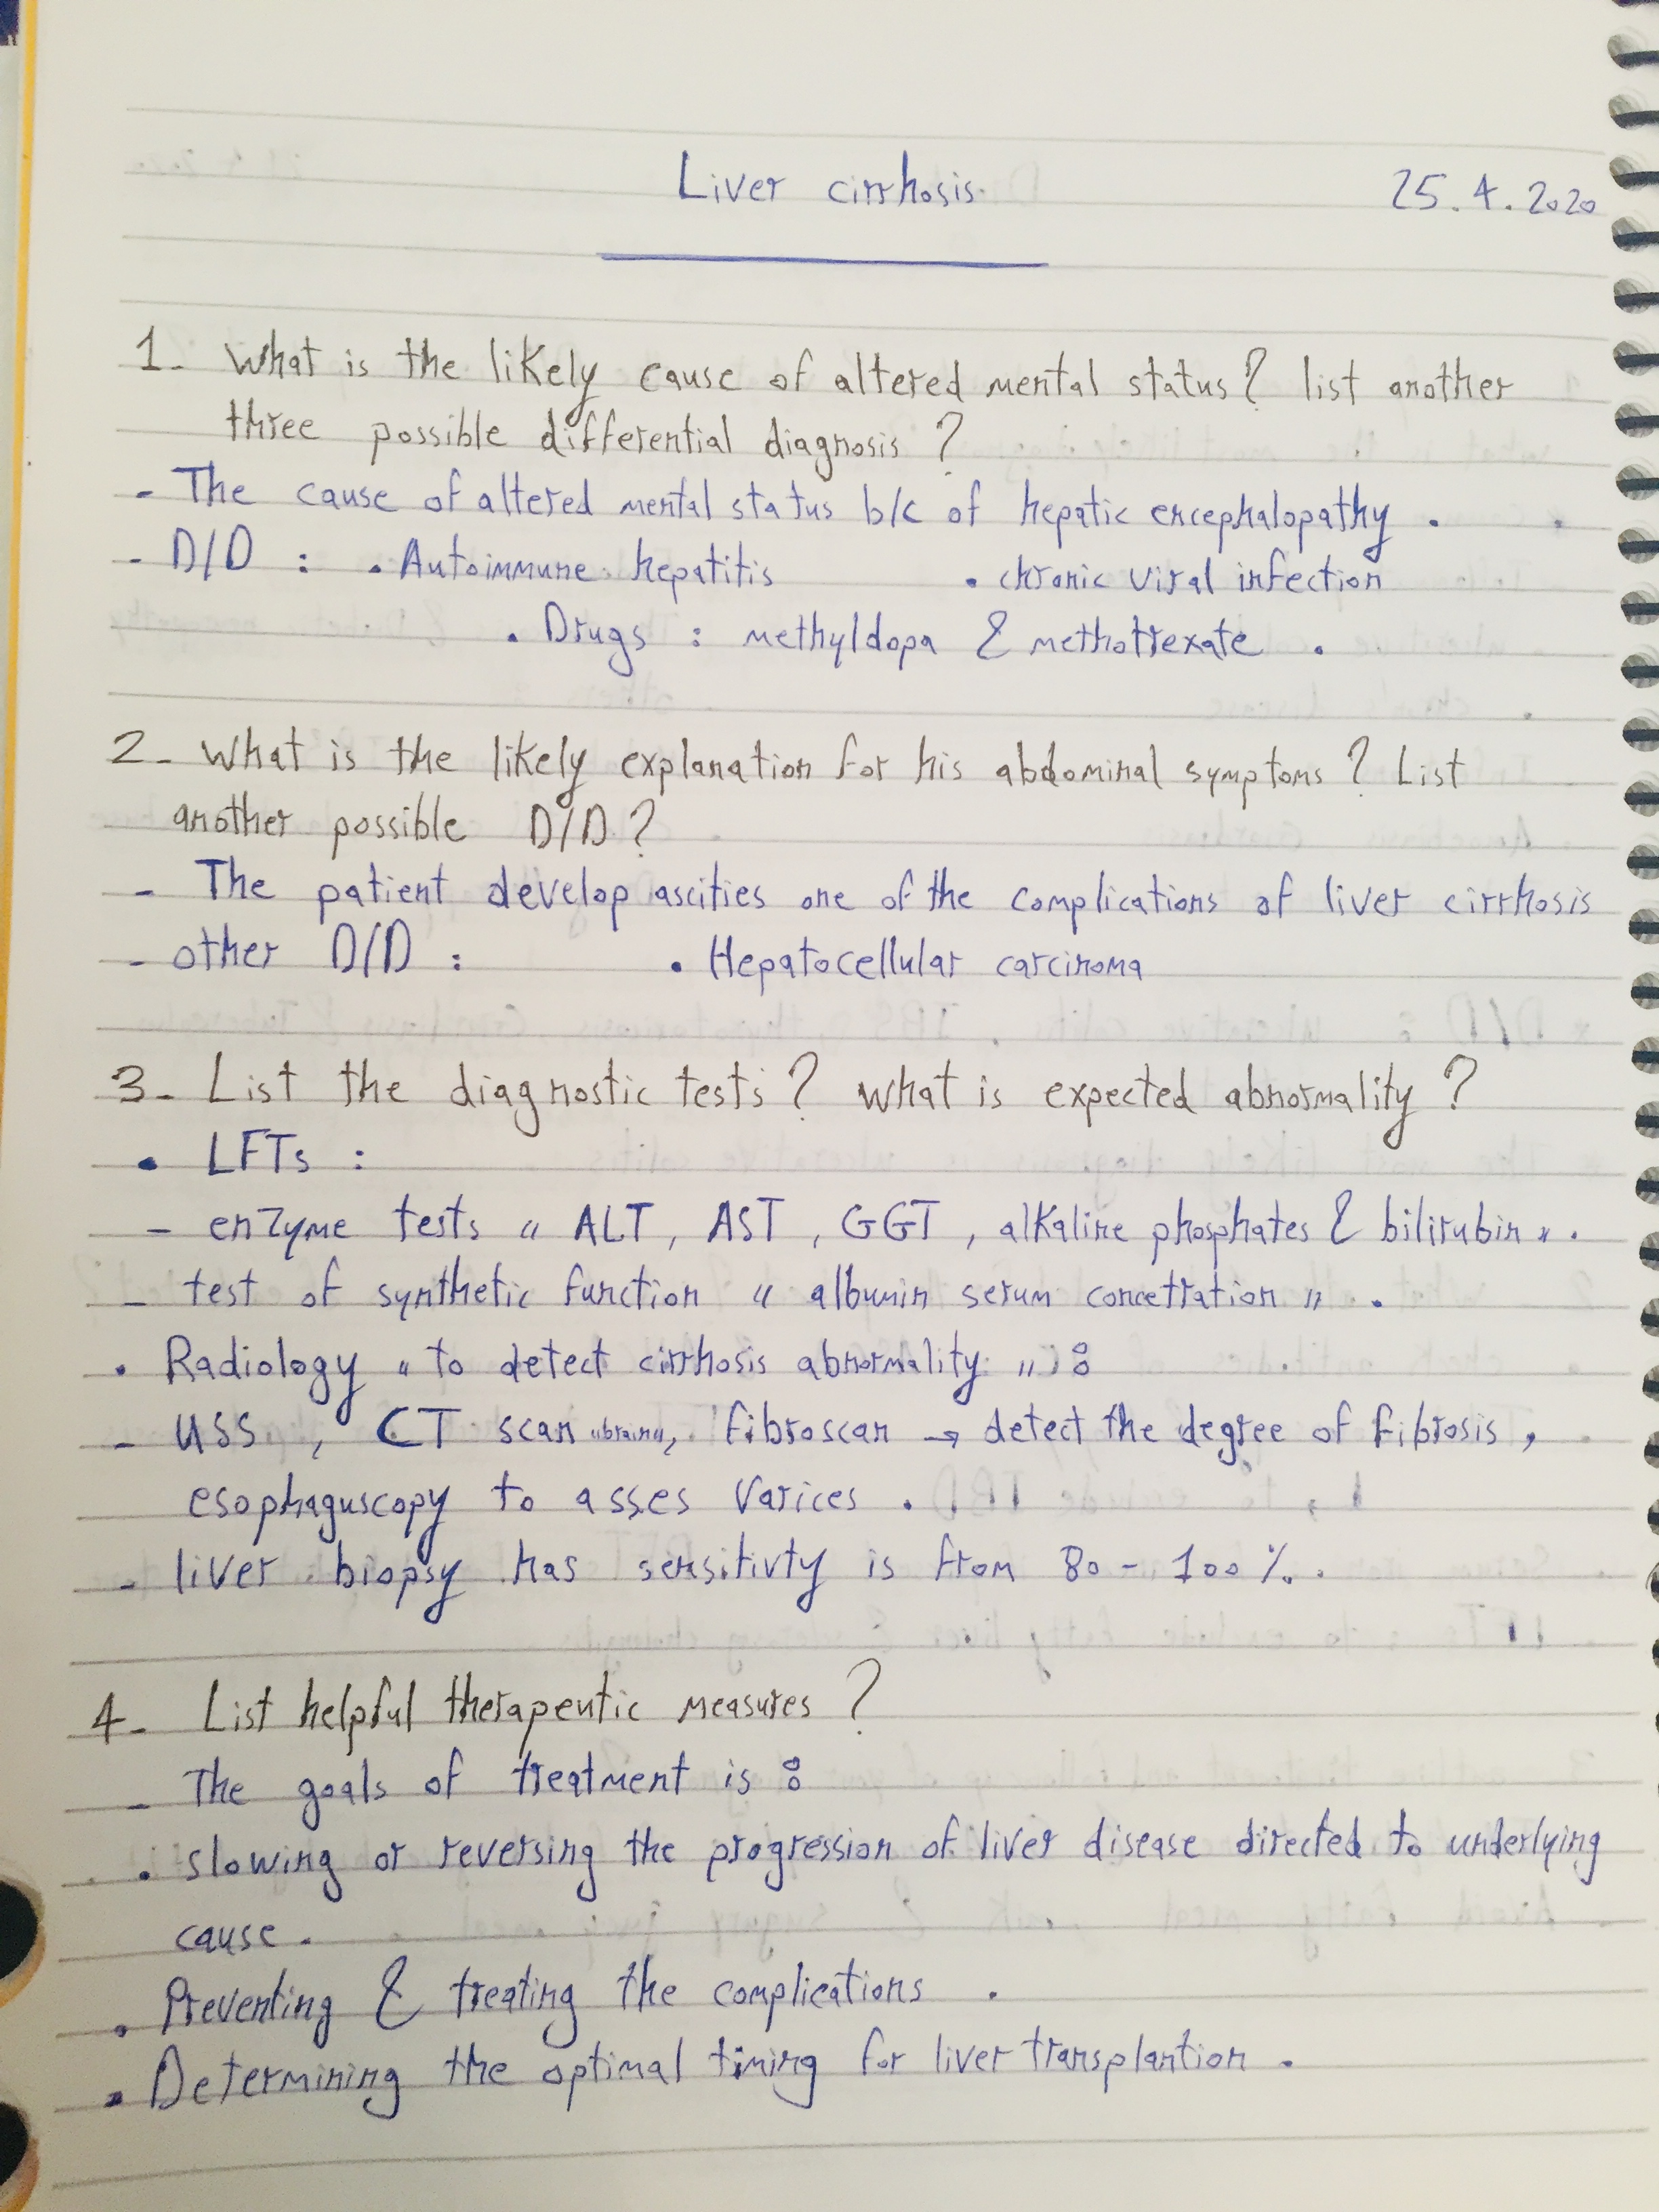 Liver cirrhosis 25.4.2020
1- What is the likely cause of altered mental status? list another
three possible differential diagnosis ?
- The cause of altered mental status b/c of hepatic encephalopathy .
- D/D : . Autoimmune hepatitis . chronic viral infection
. Drugs : methyldopa & methotrexate .
2- What is the likely explanation for his abdominal symptoms ? List
another possible D/D ?
- The patient develop ascities one of the complications of liver cirrhosis
- other D/D : • Hepatocellular carcinoma
3- List the diagnostic tests ? what is expected abnormality ?
• LFTs :
- enzyme tests " ALT, AST , GGT , alkaline phosphates & bilirubin " .
- test of synthetic function " albumin serum concetration " .
. Radiology " to detect cirrhosis abnormality " :
- USS , CT scan "brain", fibroscan → detect the degree of fibrosis ,
esophaguscopy to asses varices .
- liver biopsy has sensitivty is from 80 - 100 % .
4- List helpful therapeutic measures ?
- The goals of treatment is :
. slowing or reversing the progression of liver disease directed to underlying
cause .
. Preventing & treating the complications .
. Determining the optimal timing for liver transplantion .